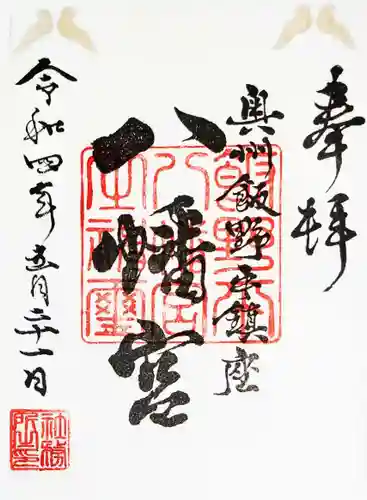 奉拝
奥州飯野平鎮座
八幡宮
令和四年五月二十一日